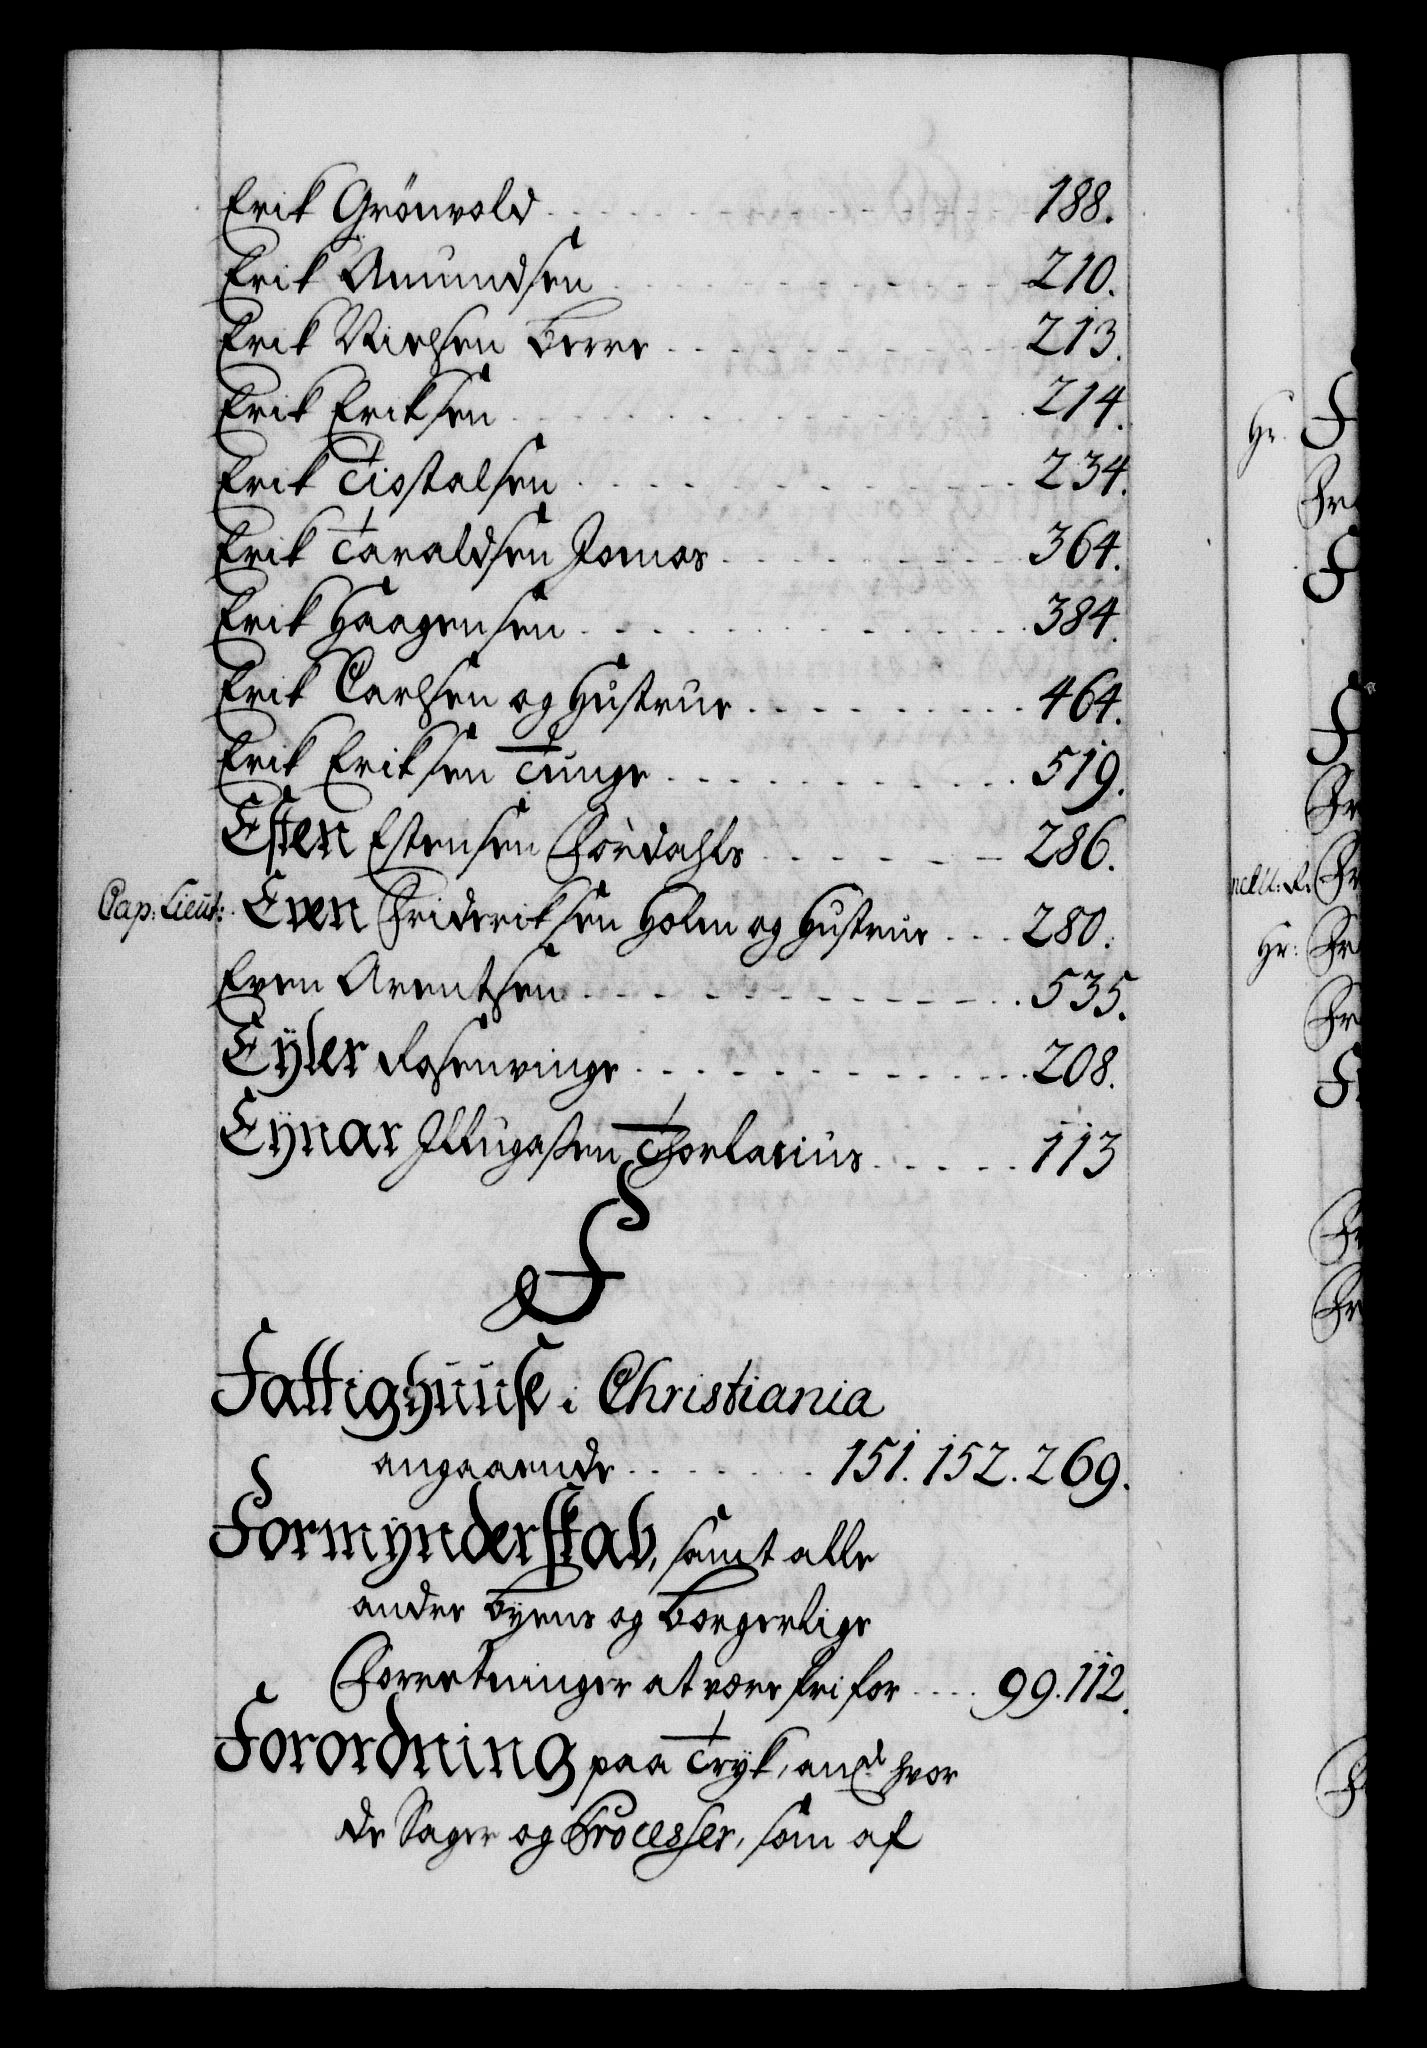 Erik Grönvold - - - - - - - - 188.
Erik Amundsen - - - - - - - - 210.
Erik Nielsen Berre - - - - - - - - 213.
Erik Eriksen - - - - - - - - 214.
Erik Tiostalsen - - - - - - - - 234.
Erik Taraldsen - - - - - - - - 364.
Erik Haagensen - - - - - - - - 384.
Erik Carlsen og Hustrue - - - - - - - - 464.
Erik Eriksen Tunge - - - - - - - - 519.
Esten Estensen - - - - - - 286.
Cap: Lieut: Even Frideriksen Holm og Hustrue - - - 280.
Even Arentsen - - - - - - - - 535.
Eyler Rosenvinge - - - - - - - - 208.
Eynar Illugasen Thorlacius - - - - - 113
F
Fattighuuse i Christiania
angaaende - - - - - - 151. 152. 269.
Formynderskab, samt alle
andre Byens og Borgerlige
Forretninger at være fri for - - - - 99. 112.
Forordning paa Tryk, angl hvor
de Sager og Processer, som af